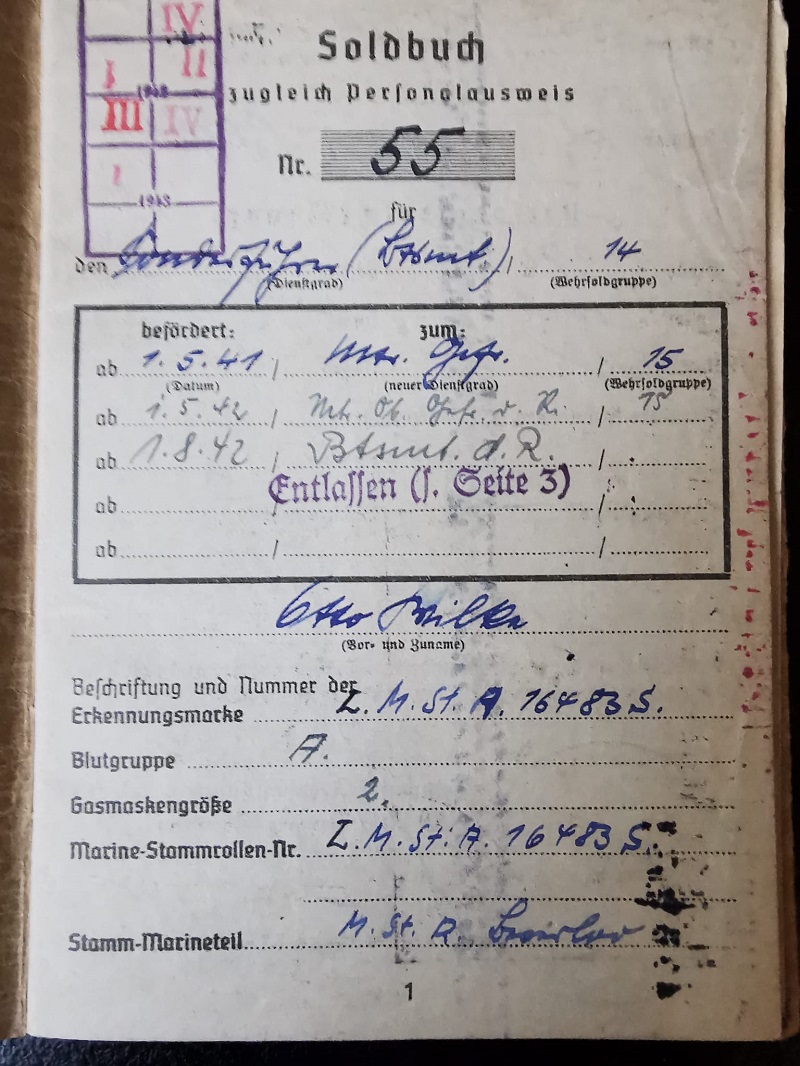 IV
I II
1942
III IV
I
1943
Soldbuch
zugleich Personalausweis
Nr. 55
für
den Sonderführer (Btsmt) / 14
(Dienstgrad) (Wehrsoldgruppe)
befördert: zum:
ab 1.5.41 / Mtr. Gefr. / 15
(Datum) (neuer Dienstgrad) (Wehrsoldgruppe)
ab 1.5.42 / Mtr. Ob. Gefr. d. R. / 15
ab 1.8.42 / Btsmt. d. R. /
Entlassen (s. Seite 3)
ab /
ab / /
Otto Wilke
(Vor- und Zuname)
Beschriftung und Nummer der
Erkennungsmarke M. St. A. 16483 S.
Blutgruppe A.
Gasmaskengröße 2.
Marine-Stammrollen-Nr. M. St. A. 16483 S.
Stamm-Marineteil M. St. A.
1